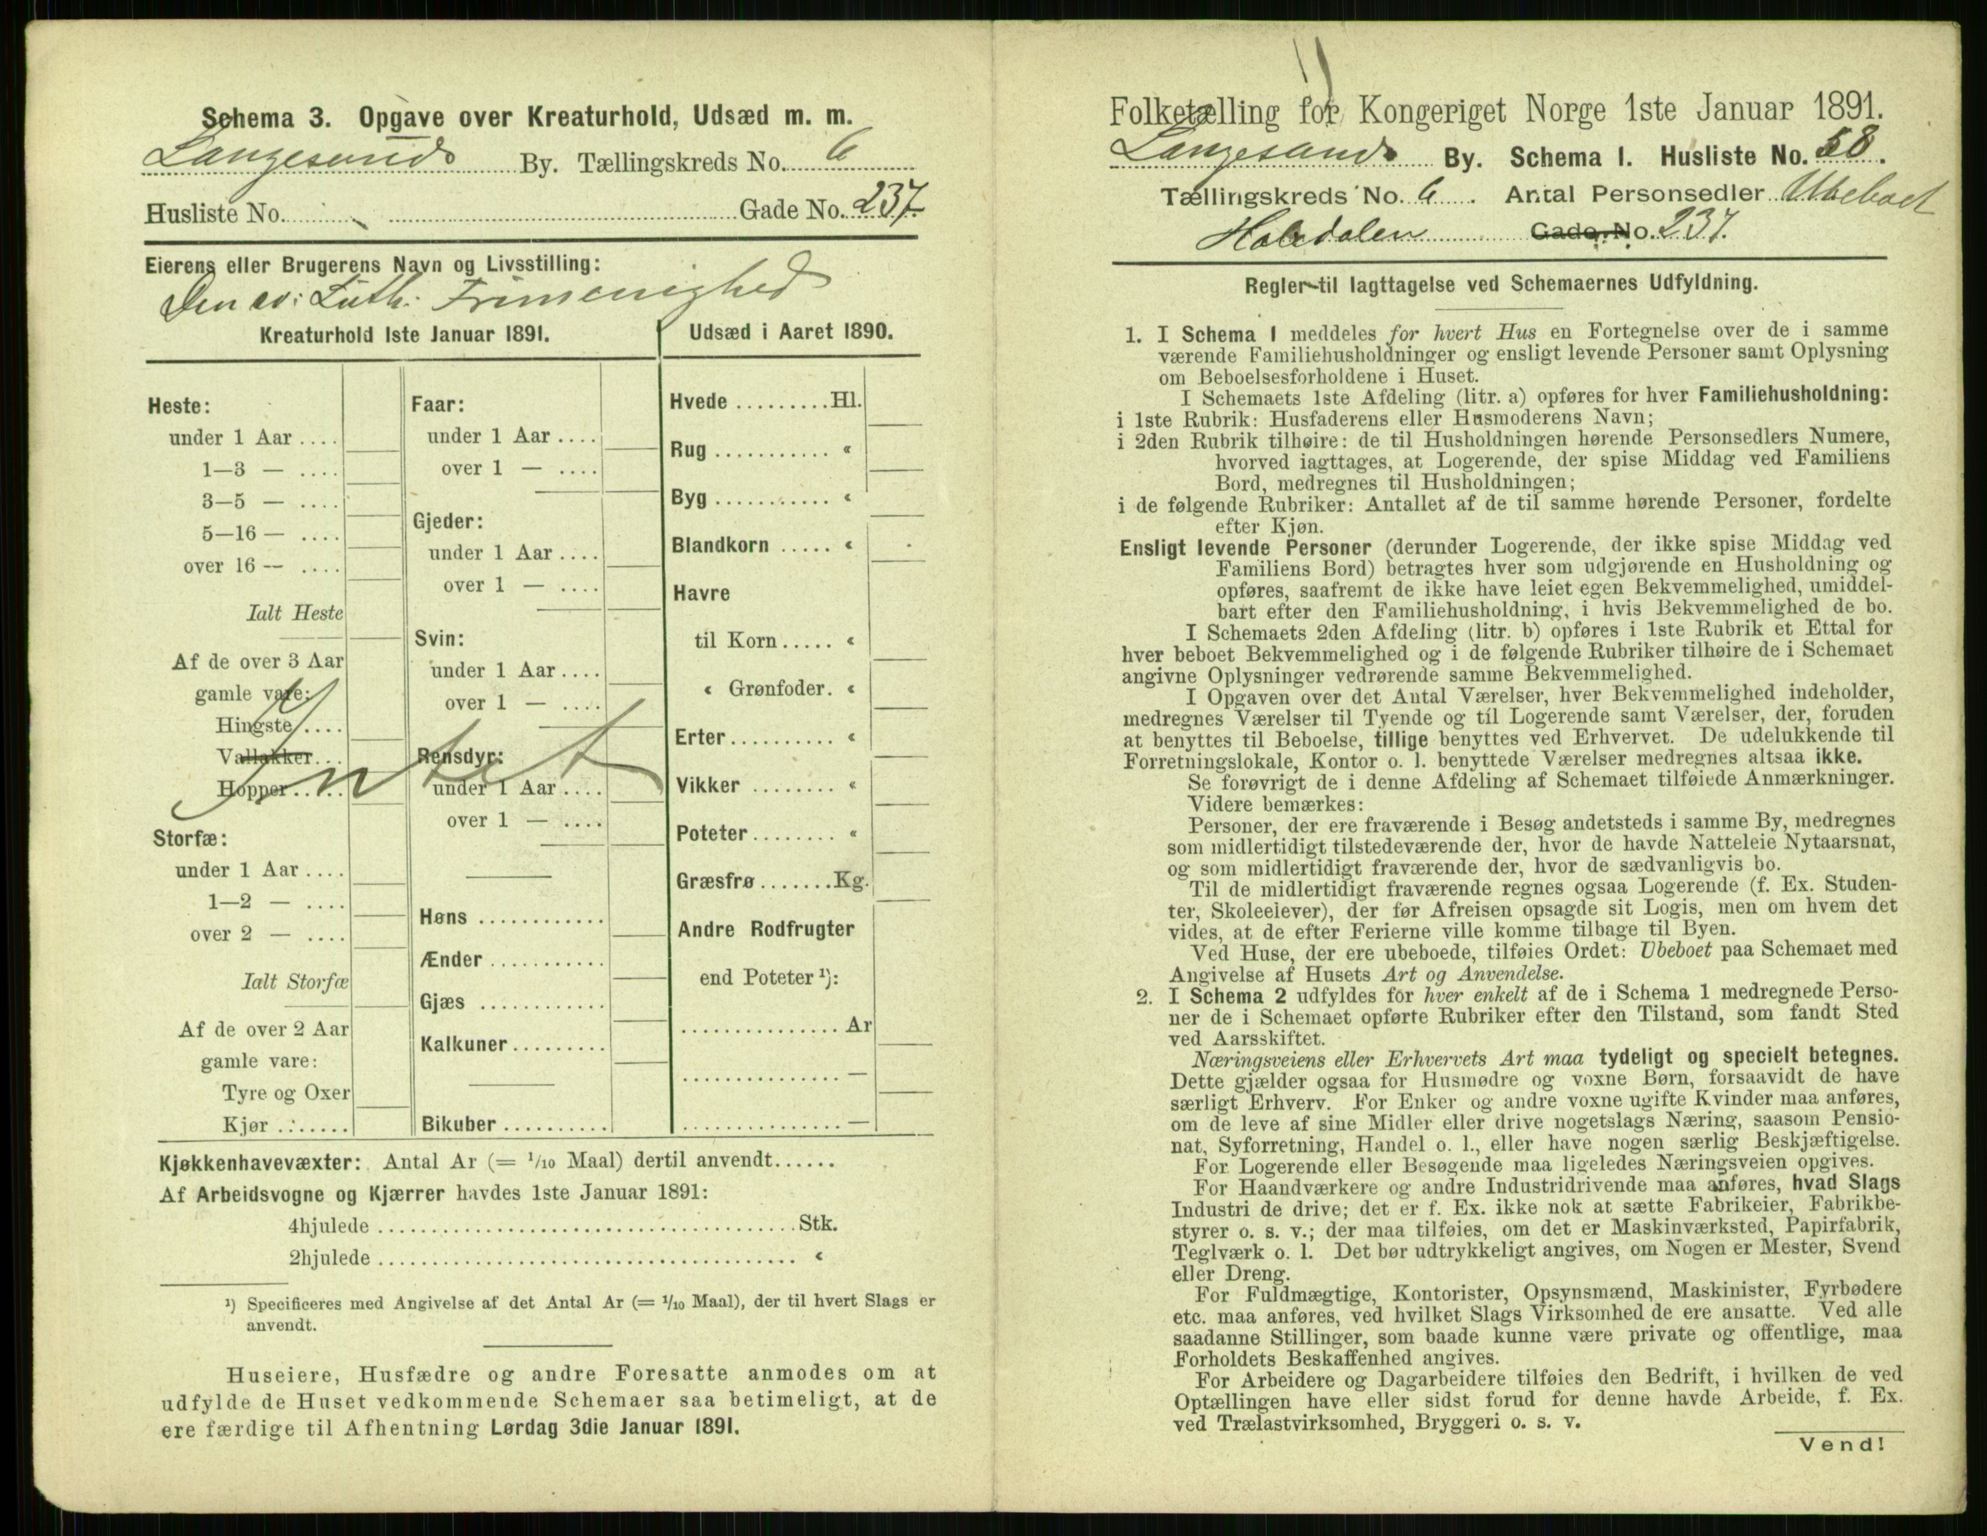 Schema 3. Opgave over Kreaturhold, Udsæd m. m.
Langesunds By. Tællingskreds No. 6
Husliste No. Gade No. 237.
Eierens eller Brugerens Navn og Livsstilling:
Den ev: Luth. Frimenighed
Kreaturhold 1ste Januar 1891.
Heste:
under 1 Aar ....
1—3 — ....
3—5 — ....
5—16 — ....
over 16 — ....
Ialt Heste
Af de over 3 Aar
gamle vare:
Hingste ....
Vallakker...
Hopper......
Intet
Storfæ:
under 1 Aar ....
1—2 — ....
over 2 — ....
Ialt Storfæ
Af de over 2 Aar
gamle vare:
Tyre og Oxer
Kjør ........
Faar:
under 1 Aar ....
over 1 — ....
Gjeder:
under 1 Aar ....
over 1 — ....
Svin:
under 1 Aar ....
over 1 — ....
Rensdyr:
under 1 Aar ....
over 1 — ....
Høns ............
Ænder ...........
Gjæs ............
Kalkuner .........
Bikuber ..........
Udsæd i Aaret 1890.
Hvede .........Hl.
Rug ........... «
Byg ........... «
Blandkorn ..... «
Havre
til Korn ..... «
« Grønfoder. «
Erter .......... «
Vikker ........ «
Poteter ........ «
Græsfrø .......Kg.
Andre Rodfrugter
end Poteter ¹):
............... Ar
............... —
............... —
Kjøkkenhavevæxter: Antal Ar (= 1/10 Maal) dertil anvendt......
Af Arbeidsvogne og Kjærrer havdes 1ste Januar 1891:
4hjulede ....................................Stk.
2hjulede .................................... «
¹) Specificeres med Angivelse af det Antal Ar (= 1/10 Maal), der til hvert Slags er
anvendt.
Huseiere, Husfædre og andre Foresatte anmodes om at
udfylde de Huset vedkommende Schemaer saa betimeligt, at de
ere færdige til Afhentning Lørdag 3die Januar 1891.
Folketælling for Kongeriget Norge 1ste Januar 1891.
Langesunds By. Schema 1. Husliste No. 58.
Tællingskreds No. 6. Antal Personsedler Ubeboet
Gade No. 237.
Regler til Iagttagelse ved Schemaernes Udfyldning.
1. I Schema 1 meddeles for hvert Hus en Fortegnelse over de i samme
værende Familiehusholdninger og ensligt levende Personer samt Oplysning
om Beboelsesforholdene i Huset.
I Schemaets 1ste Afdeling (litr. a) opføres for hver Familiehusholdning:
i 1ste Rubrik: Husfaderens eller Husmoderens Navn;
i 2den Rubrik tilhøire: de til Husholdningen hørende Personsedlers Numere,
hvorved iagttages, at Logerende, der spise Middag ved Familiens
Bord, medregnes til Husholdningen;
i de følgende Rubriker: Antallet af de til samme hørende Personer, fordelte
efter Kjøn.
Ensligt levende Personer (derunder Logerende, der ikke spise Middag ved
Familiens Bord) betragtes hver som udgjørende en Husholdning og
opføres, saafremt de ikke have leiet egen Bekvemmelighed, umiddel-
bart efter den Familiehusholdning, i hvis Bekvemmelighed de bo.
I Schemaets 2den Afdeling (litr. b) opføres i 1ste Rubrik et Ettal for
hver beboet Bekvemmelighed og i de følgende Rubriker tilhøire de i Schemaet
angivne Oplysninger vedrørende samme Bekvemmelighed.
I Opgaven over det Antal Værelser, hver Bekvemmelighed indeholder,
medregnes Værelser til Tyende og til Logerende samt Værelser, der, foruden
at benyttes til Beboelse, tillige benyttes ved Erhvervet. De udelukkende til
Forretningslokale, Kontor o. l. benyttede Værelser medregnes altsaa ikke.
Se forøvrigt de i denne Afdeling af Schemaet tilføiede Anmærkninger.
Videre bemærkes:
Personer, der ere fraværende i Besøg andetsteds i samme By, medregnes
som midlertidigt tilstedeværende der, hvor de havde Natteleie Nytaarsnat,
og som midlertidigt fraværende der, hvor de sædvanligvis bo.
Til de midlertidigt fraværende regnes ogsaa Logerende (f. Ex. Studen-
ter, Skoleelever), der før Afreisen opsagde sit Logis, men om hvem det
vides, at de efter Ferierne ville komme tilbage til Byen.
Ved Huse, der ere ubeboede, tilføies Ordet: Ubeboet paa Schemaet med
Angivelse af Husets Art og Anvendelse.
2. I Schema 2 udfyldes for hver enkelt af de i Schema 1 medregnede Perso-
ner de i Schemaet opførte Rubriker efter den Tilstand, som fandt Sted
ved Aarsskiftet.
Næringsveiens eller Erhvervets Art maa tydeligt og specielt betegnes.
Dette gjælder ogsaa for Husmødre og voxne Børn, forsaavidt de have
særligt Erhverv. For Enker og andre voxne ugifte Kvinder maa anføres,
om de leve af sine Midler eller drive nogetslags Næring, saasom Pensio-
nat, Syforretning, Handel o. l., eller have nogen særlig Beskjæftigelse.
For Logerende eller Besøgende maa ligeledes Næringsveien opgives.
For Haandværkere og andre Industridrivende maa anføres, hvad Slags
Industri de drive; det er f. Ex. ikke nok at sætte Fabrikeier, Fabrikbe-
styrer o. s. v.; der maa tilføies, om det er Maskinværksted, Papirfabrik,
Teglværk o. l. Det bør udtrykkeligt angives, om Nogen er Mester, Svend
eller Dreng.
For Fuldmægtige, Kontorister, Opsynsmænd, Maskinister, Fyrbødere
etc. maa anføres, ved hvilket Slags Virksomhed de ere ansatte. Ved alle
saadanne Stillinger, som baade kunne være private og offentlige, maa
Forholdets Beskaffenhed angives.
For Arbeidere og Dagarbeidere tilføies den Bedrift, i hvilken de ved
Optællingen have eller sidst forud for denne havde Arbeide, f. Ex.
ved Trælastvirksomhed, Bryggeri o. s. v.
Vend!